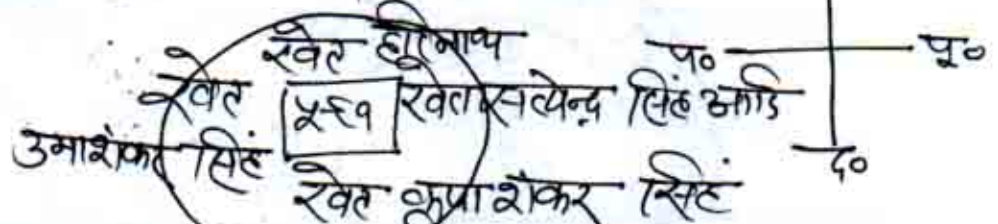 खेत हरिनाथ
प० पू०
खेत ५६१ खेत सत्येन्द्र सिंह आदि
उमाशंकर सिंह
द०
खेत कृपा शंकर सिंह